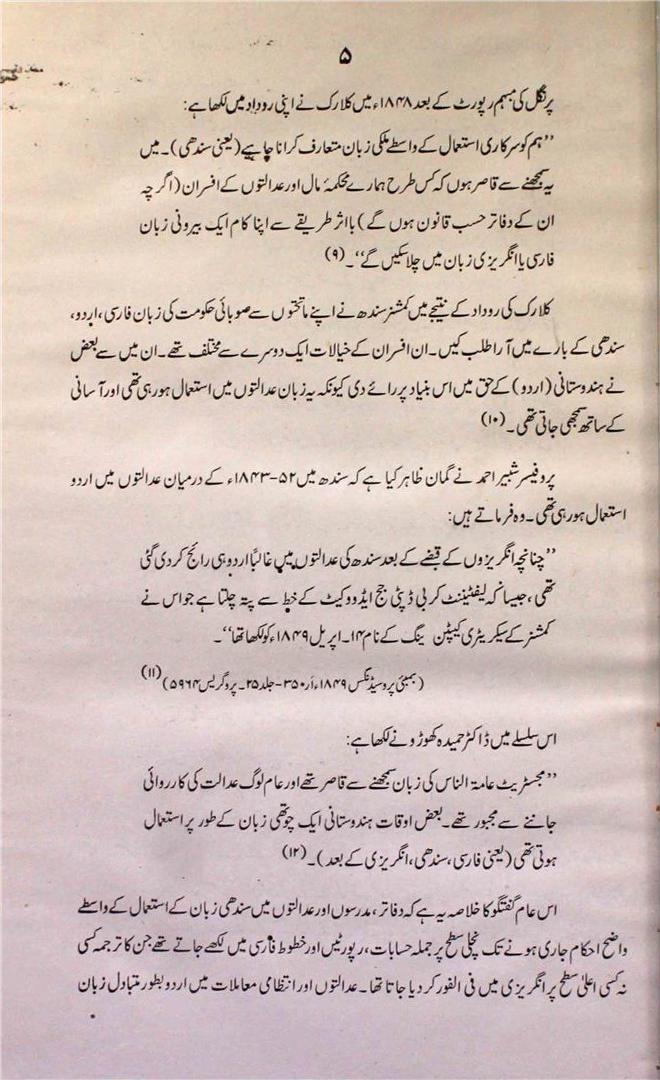 ۵
پرنگل کی مبہم رپورٹ کے بعد ۱۸۴۸ء میں کلارک نے اپنی روداد میں لکھا ہے:
’’ہم کو سرکاری استعمال کے واسطے ملکی زبان متعارف کرانا چاہیے (یعنی سندھی)۔ میں
یہ سمجھنے سے قاصر ہوں کہ کس طرح ہمارے محکمۂ مال اور عدالتوں کے افسران (اگر چہ
ان کے دفاتر حسب قانون ہوں گے) بااثر طریقے سے اپنا کام ایک بیرونی زبان
فارسی یا انگریزی زبان میں چلا سکیں گے‘‘۔ (۹)
کلارک کی روداد کے نتیجے میں کمشنر سندھ نے اپنے ماتحتوں سے صوبائی حکومت کی زبان فارسی، اردو،
سندھی کے بارے میں آرا طلب کیں۔ ان افسران کے خیالات ایک دوسرے سے مختلف تھے۔ ان میں سے بعض
نے ہندوستانی (اردو) کے حق میں اس بنیاد پر رائے دی کیونکہ یہ زبان عدالتوں میں استعمال ہو رہی تھی اور آسانی
کے ساتھ سمجھی جاتی تھی۔ (۱۰)
پروفیسر شبیر احمد نے گمان ظاہر کیا ہے کہ سندھ میں ۵۲-۱۸۴۳ء کے درمیان عدالتوں میں اردو
استعمال ہو رہی تھی۔ وہ فرماتے ہیں:
’’چنانچہ انگریزوں کے قبضے کے بعد سندھ کی عدالتوں میں غالباً اردو ہی رائج کر دی گئی
تھی، جیسا کہ لیفٹیننٹ کربی ڈپٹی جج ایڈووکیٹ کے خط سے پتہ چلتا ہے جو اس نے
کمشنر کے سیکریٹری کیپٹن ینگ کے نام ۱۴۔ اپریل ۱۸۴۹ء کو لکھا تھا‘‘۔
(بمبئی پروسیڈنگس ۱۸۴۹ء اَر ۳۵۰-جلد ۲۵۔ پروگریس ۵۹۶۴) (۱۱)
اس سلسلے میں ڈاکٹر حمیدہ کھوڑو نے لکھا ہے:
’’مجسٹریٹ عامۃ الناس کی زبان سمجھنے سے قاصر تھے اور عام لوگ عدالت کی کارروائی
جاننے سے مجبور تھے۔ بعض اوقات ہندوستانی ایک چوتھی زبان کے طور پر استعمال
ہوتی تھی (یعنی فارسی، سندھی، انگریزی کے بعد)۔ (۱۲)
اس عام گفتگو کا خلاصہ یہ ہے کہ دفاتر، مدرسوں اور عدالتوں میں سندھی زبان کے استعمال کے واسطے
واضح احکام جاری ہونے تک نچلی سطح پر جملہ حسابات، رپورٹیں اور خطوط فارسی میں لکھے جاتے تھے جن کا ترجمہ کسی
نہ کسی اعلیٰ سطح پر انگریزی میں فی الفور کر دیا جاتا تھا۔ عدالتوں اور انتظامی معاملات میں اردو بطور متبادل زبان